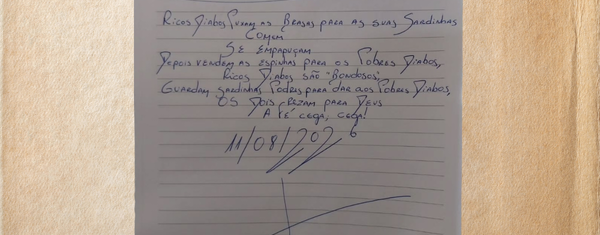 Ricos Diabos Puxam as Brasas para as suas Sardinhas
Comem
Se empapuçam
Depois vendem as espinhas para os Pobres Diabos,
Ricos Diabos são "Bondosos",
Guardam sardinhas Podres para dar aos Pobres Diabos,
Os Dois rezam para Deus
A fé cega, cega!
11/08/2026